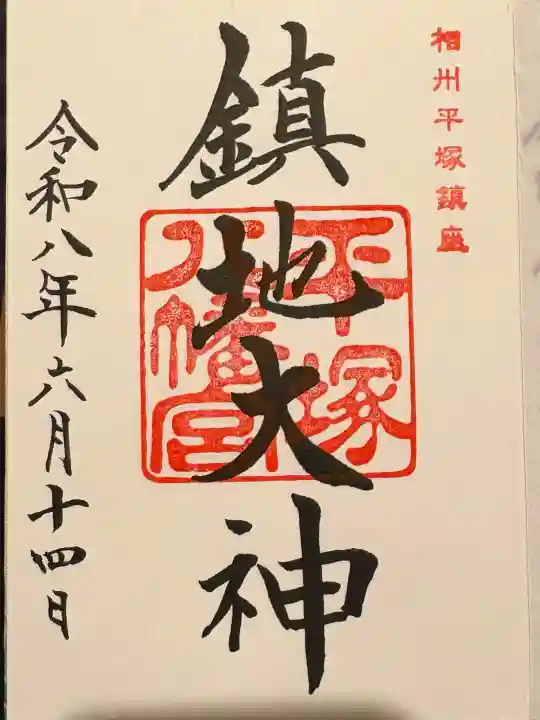 相州平塚鎮座
鎮地大神
平塚
八幡宮
令和八年六月十四日